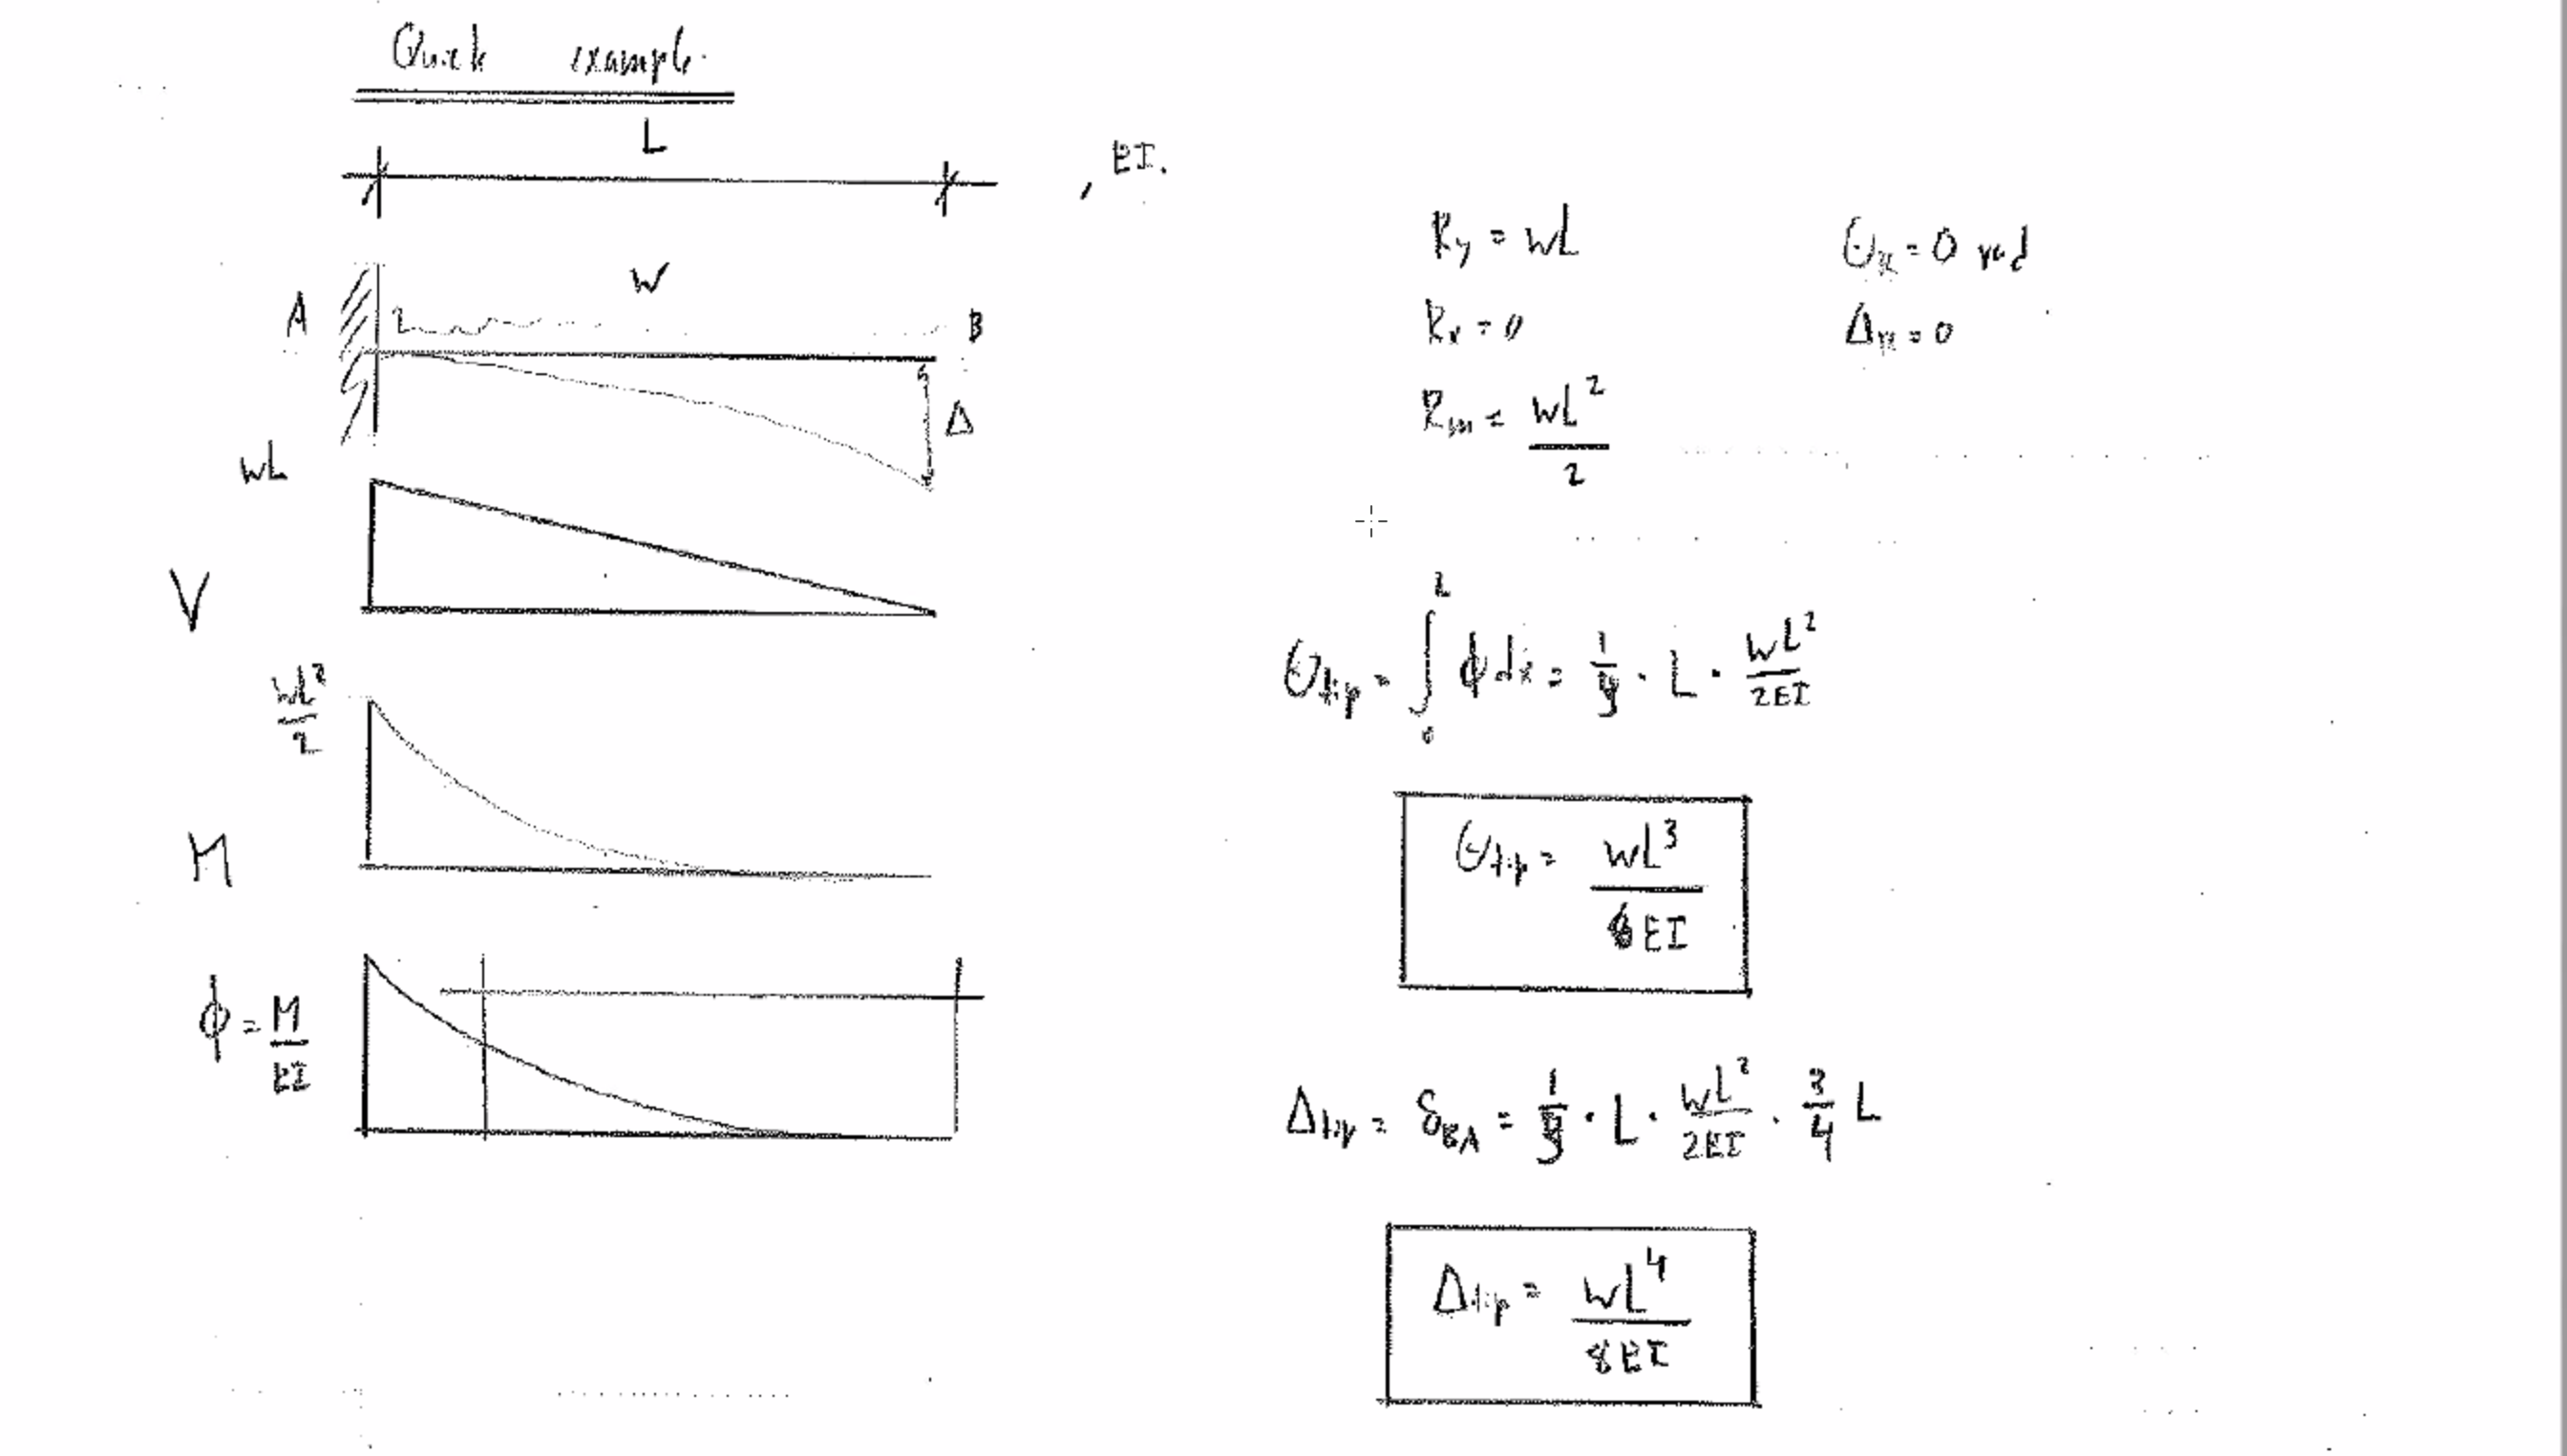 Quick example.
L
, EI.
A
W
B
Δ
wL
V
wL²
2
M
ϕ = M
EI
Ry = wL
Rx = 0
Rm = wL²
2
= 0 rad
= 0
θtip = ∫₀ᴸ ϕ dx = 1/3 · L · wL²/2EI
θtip = wL³
6EI
Δtip = δBA = 1/3 · L · wL²/2EI · 3/4 L
Δtip = wL⁴
8EI